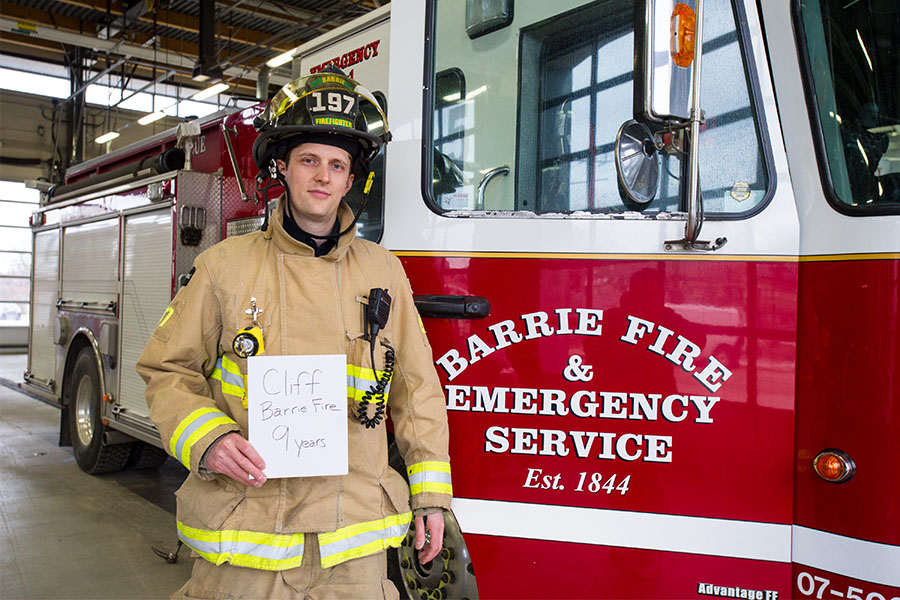 BARRIE
197
FIREFIGHTER
EMERGENCY
Cliff
Barrie Fire
9 years
BARRIE FIRE
&
EMERGENCY
SERVICE
Est. 1844
Advantage FF